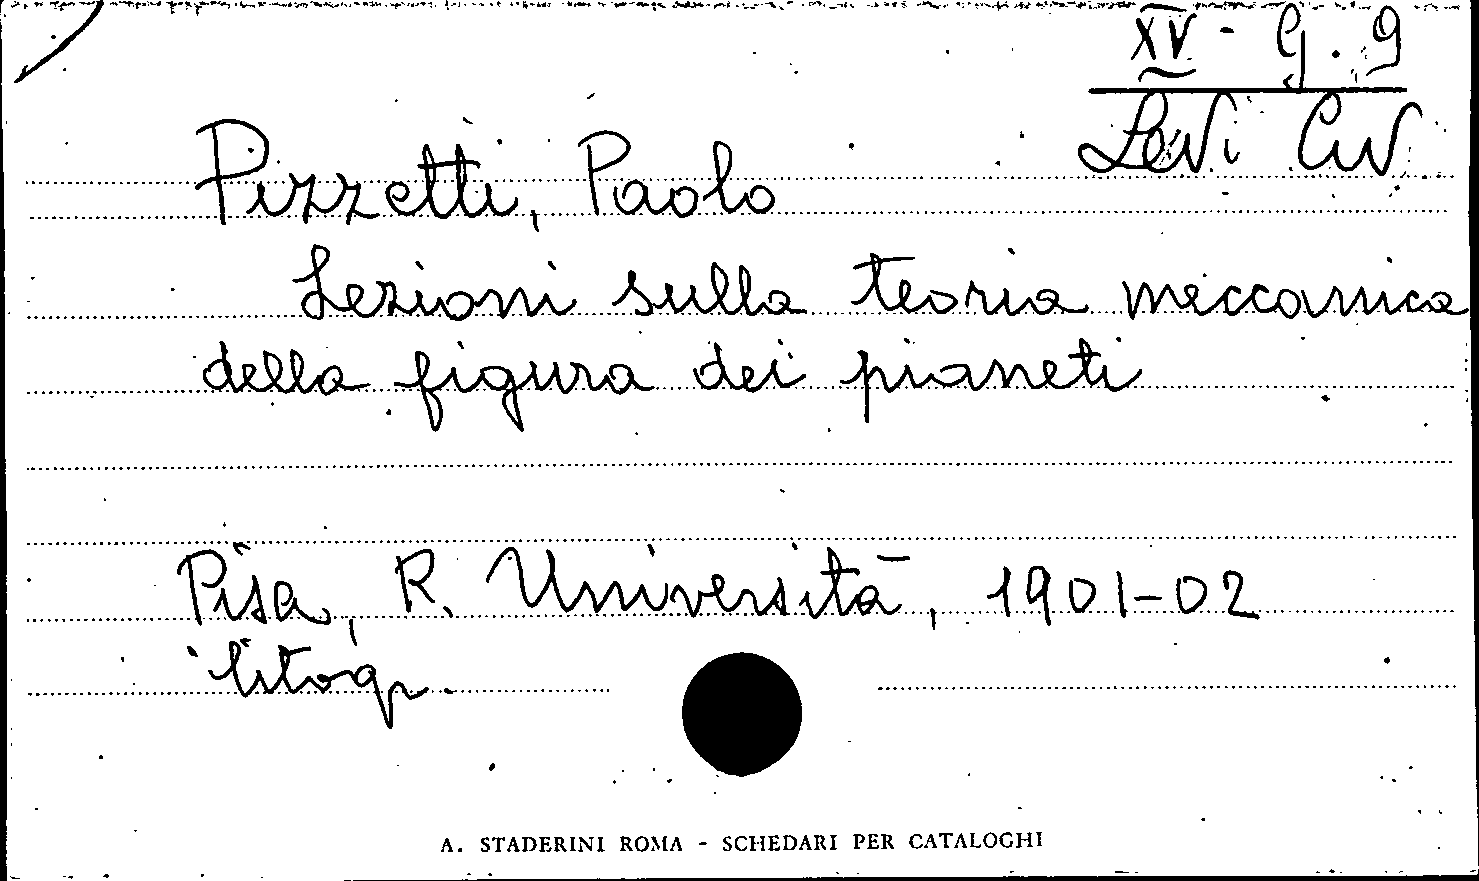 XV - G. 9
Levi Civ
Pizzetti, Paolo
Lezioni sulla teoria meccanica
della figura dei pianeti
Pisa, R. Università, 1901-02
litogr.
A. STADERINI ROMA - SCHEDARI PER CATALOGHI